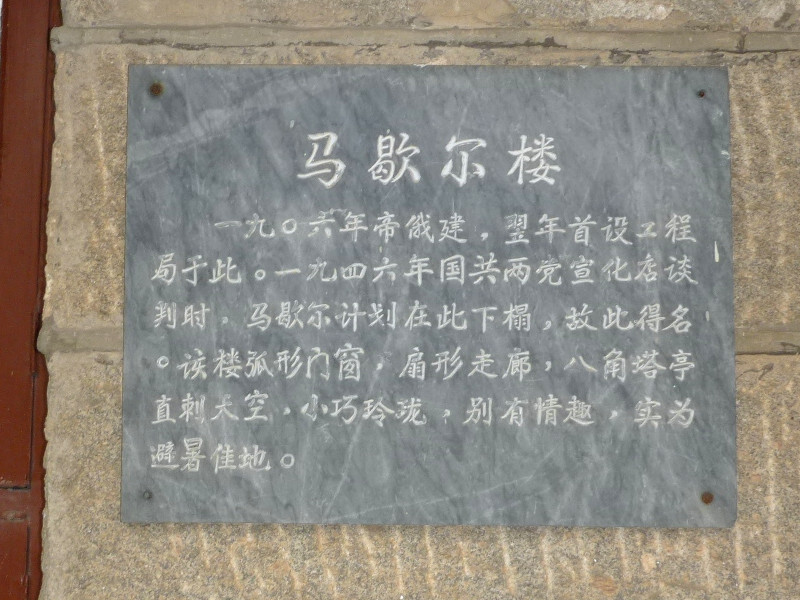 马歇尔楼
一九〇六年帝俄建，翌年首设工程
局于此。一九四六年国共两党宣化店谈
判时，马歇尔计划在此下榻，故此得名
。该楼弧形门窗，扇形走廊，八角塔亭
直刺天空，小巧玲珑，别有情趣，实为
避暑佳地。